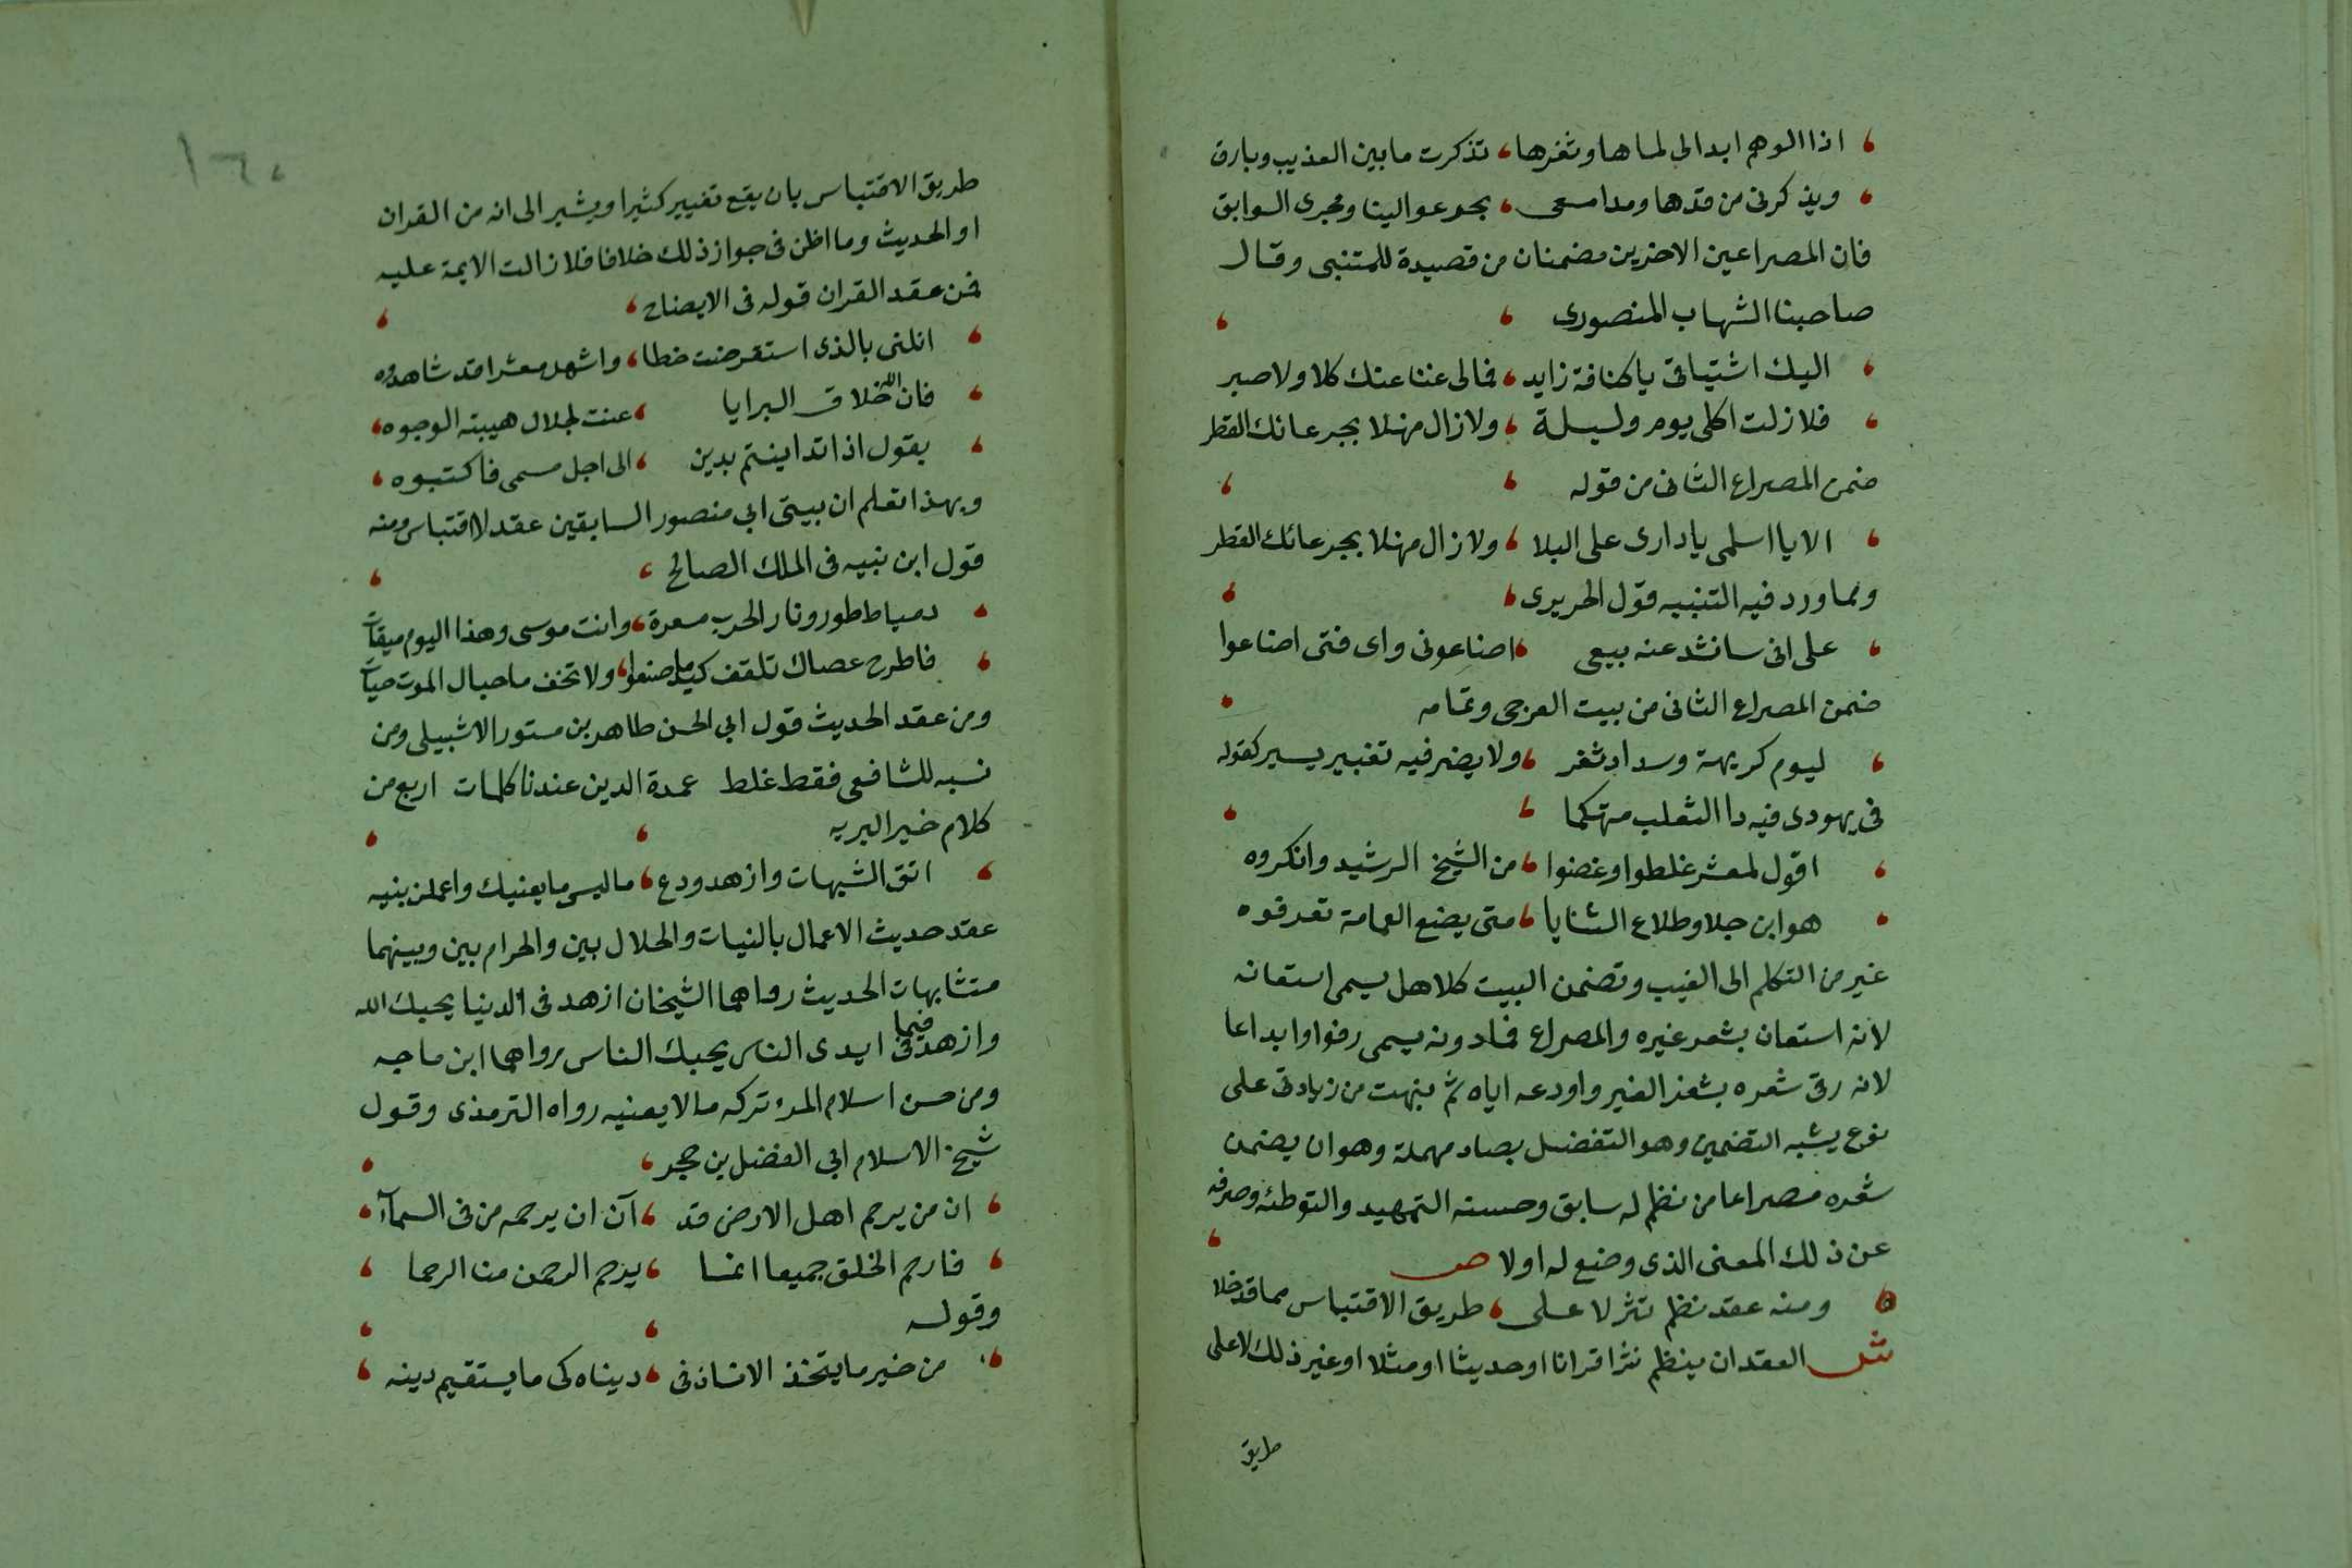 اذا الوهم ابدا لى لماها وثغرها تذكرت ما بين العذيب وبارق
ويذكرنى من قدها ومدامعى بجر عوالينا ومجرى السوابق
فان المصراعين الاخرين مضمنان من قصيدة للمتنبى وقال
صاحبنا الشهاب المنصورى
اليك اشتياقى يا كنافة زايد فمالى عنا عنك كلا ولا صبر
فلا زلت اكلى يوم وليلة ولا زال منهلا بجرعائك القطر
ضمن المصراع الثانى من قوله
الا يا اسلمى يا دارى على البلا ولا زال منهلا بجرعائك القطر
ومما ورد فيه التنبيه قول الحريرى
على انى سانشد عند بيعى اضاعونى واى فتى اضاعوا
ضمن المصراع الثانى من بيت العرجى وتمامه
ليوم كريهة وسداد ثغر ولا يضر فيه تغيير يسير كقوله
فى يهودى فيه دا الثعلب متهكما
اقول لمعشر غلطوا وغضوا من الشيخ الرشيد وانكروه
هو ابن جلا وطلاع الثنايا متى يضع العمامة تعرفوه
غير من التكلم الى الغيب وتضمن البيت كلا هل يسمى استعانه
لانه استعان بشعر غيره والمصراع فما دونه يسمى رفوا وابداعا
لانه رفى شعره بشعر الغير واودعه اياه ثم نبهت من زيادتى على
نوع يشبه التضمين وهو التفضل بصاد مهملة وهو ان يضمن
شعره مصراعا من نظم له سابق وحسنه التمهيد والتوطئه وصرفه
عن ذلك المعنى الذى وضع له اولا ص
ومنه عقد نظم نثر لا على طريق الاقتباس مما قد خلا
ش العقد ان ينظم نثرا قرانا او حديثا او مثلا او غير ذلك لا على
طريق
١٦٠
طريق الاقتباس بان يقع تغيير كثير او يشير الى انه من القران
او الحديث وما اظن فى جواز ذلك خلافا فلا زالت الايمة عليه
فمن عقد القران قوله فى الايضاح
انلنى بالذى استقرضت خطا واشهد معشرا قد شاهدوه
فان الله خلاق البرايا عنت لجلال هيبته الوجوه
يقول اذا تداينتم بدين الى اجل مسمى فاكتبوه
وبهذا تعلم ان بيتى ابى منصور السابقين عقد لا اقتباس ومنه
قول ابن نبيه فى الملك الصالح
دمياط طور ونار الحرب مسعرة وانت موسى وهذا اليوم ميقات
فاطرح عصاك تلقف كيلما صنعوا ولا تخف ما حبال الموت حيات
ومن عقد الحديث قول ابى الحسن طاهر بن مستور الاشبيلى ومن
نسبه للشافعى فقط غلط عمدة الدين عندنا كلمات اربع من
كلام خير البريه
اتق الشبهات وازهد ودع ما ليس ما يعنيك واعملن بنيه
عقد حديث الاعمال بالنيات والحلال بين والحرام بين وبينهما
متشابهات الحديث رواهما الشيخان ازهد فى الدنيا يحبك الله
وازهد فيما فى ايدى الناس يحبك الناس رواهما ابن ماجه
ومن حسن اسلام المرء تركه ما لا يعنيه رواه الترمذى وقول
شيخ الاسلام ابى الفضل بن حجر
ان من يرحم اهل الارض قد آن ان يرحمه من فى السمآء
فارحم الخلق جميعا انما يرحم الرحمن منا الرحما
وقوله
من خير ما يتخذ الانسان فى دنياه كى ما يستقيم دينه